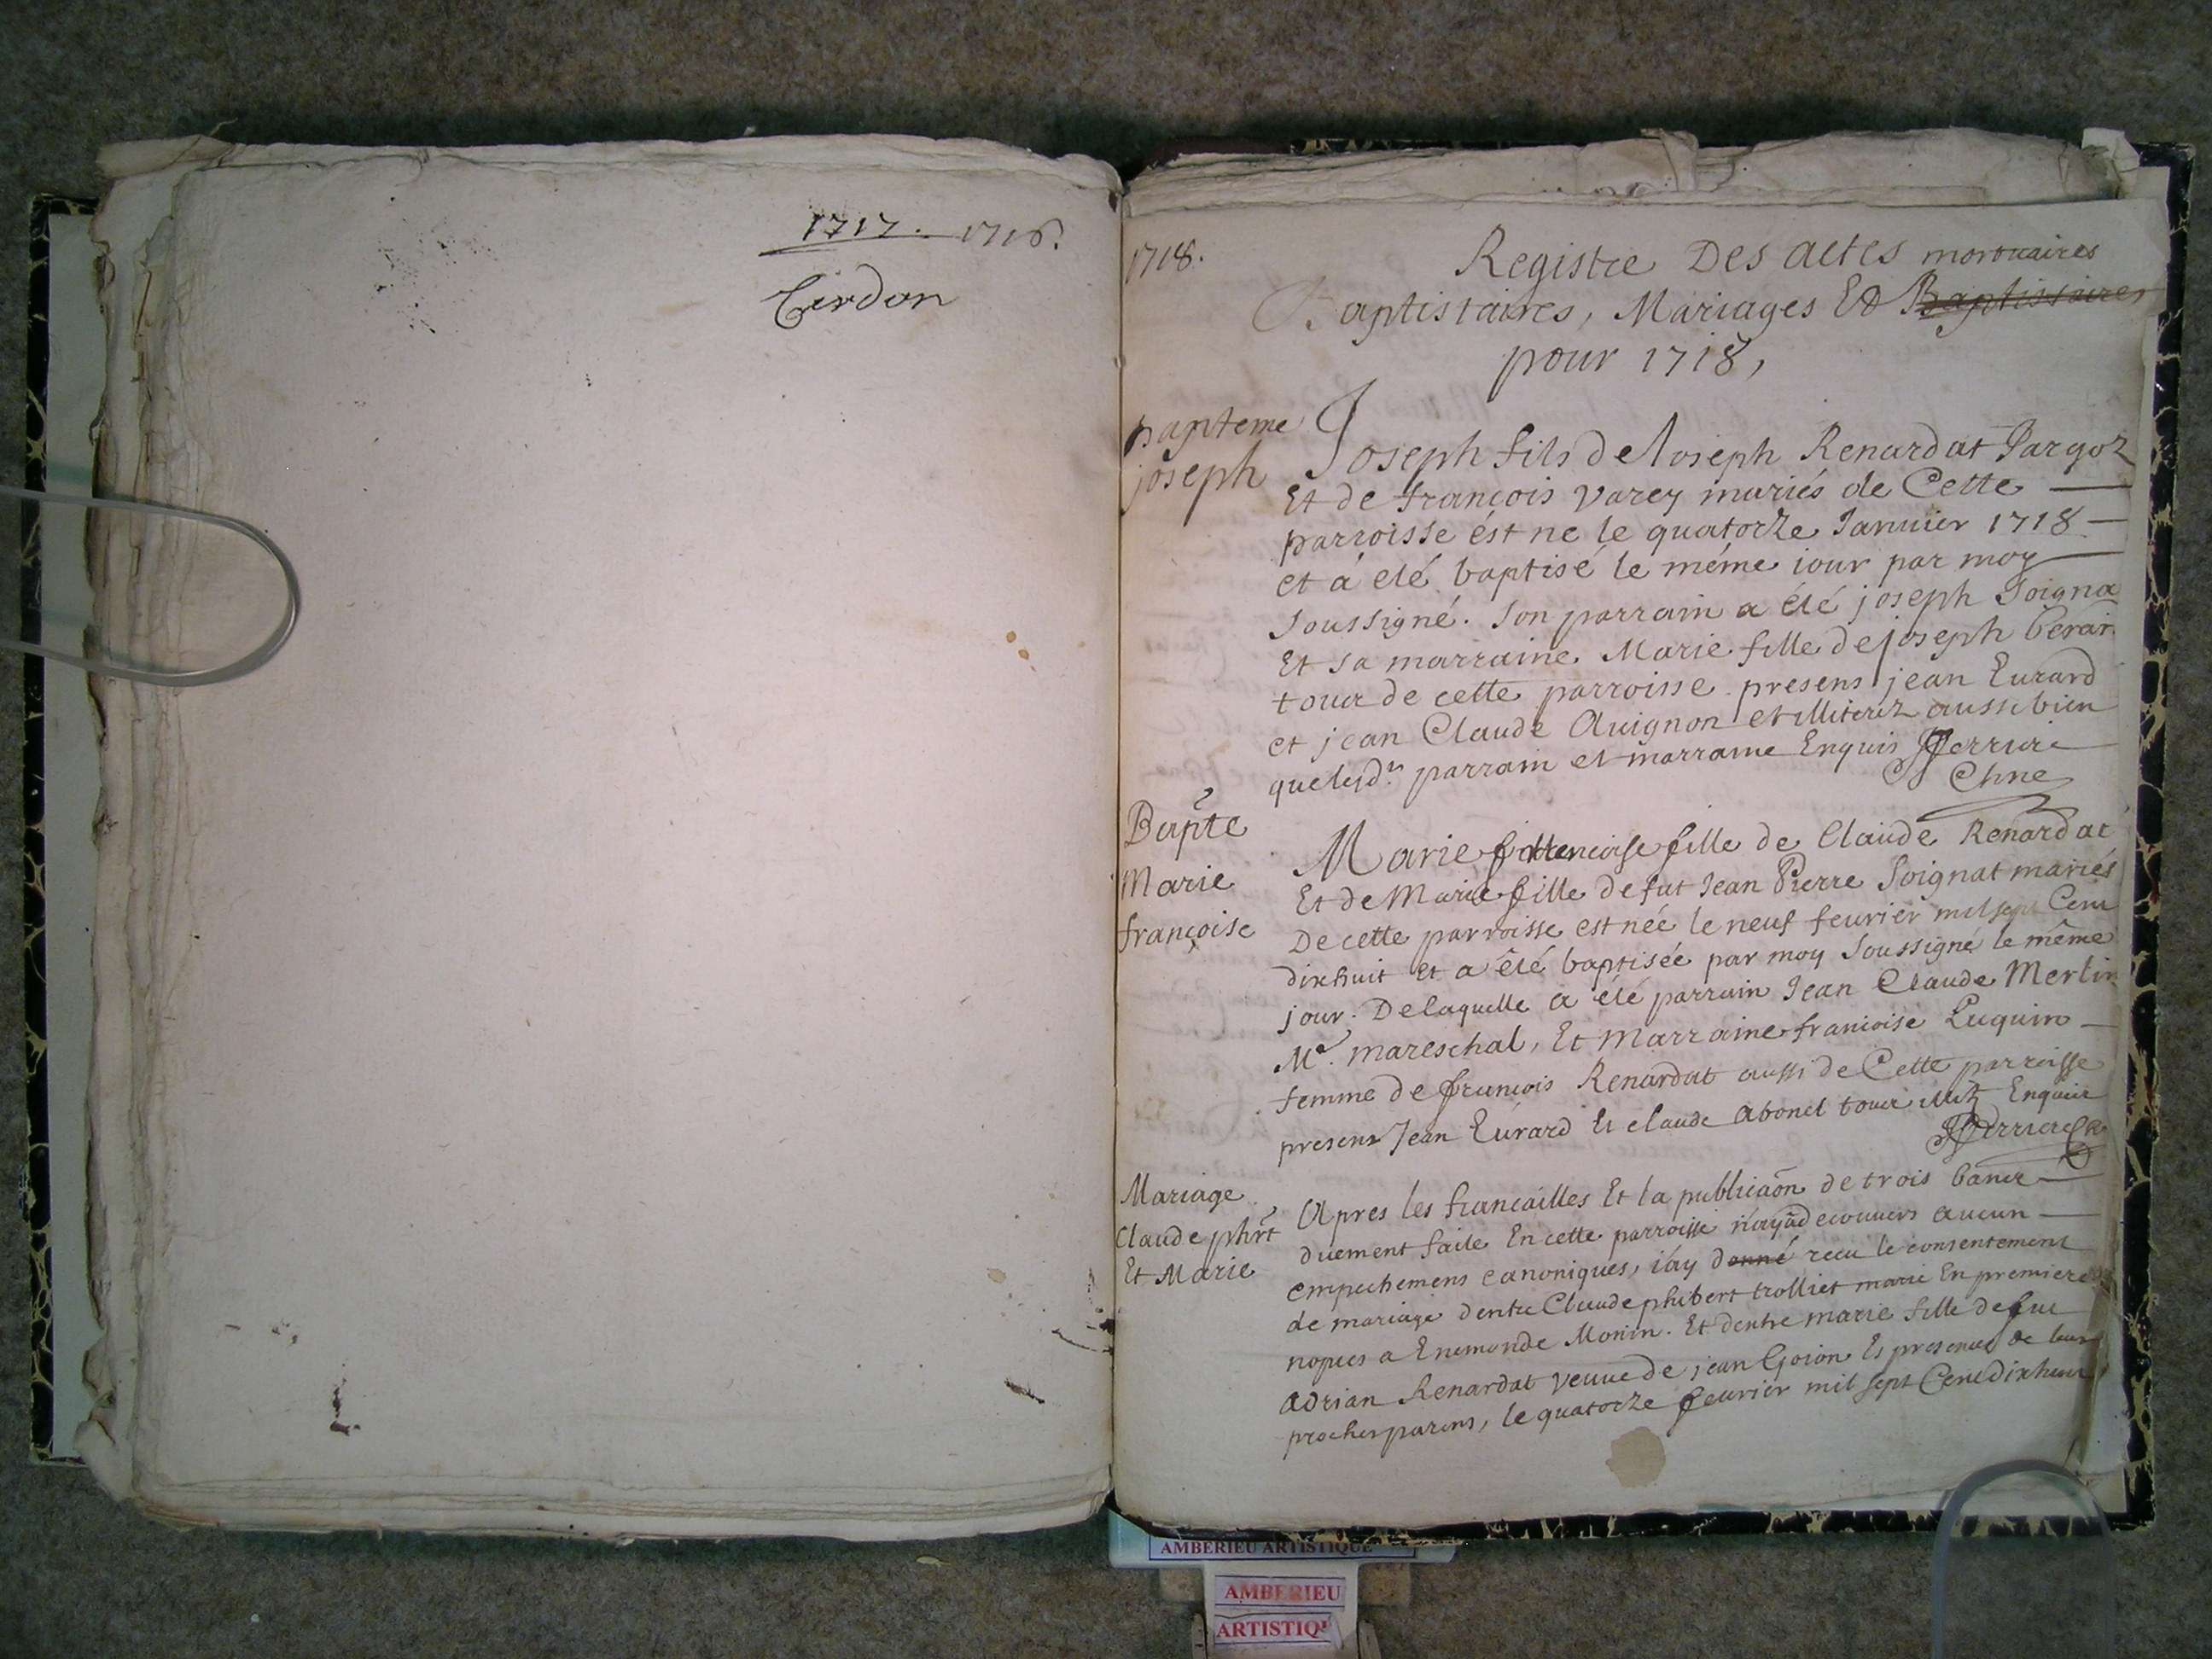 1717. 1716.
Cerdon
1718.
Registre Des actes mortuaires
Baptistaires, Mariages Et Baptistaires
pour 1718,
bapteme
joseph
Joseph fils de Joseph Renardat Pargoz
Et de francois varey mariés de Cette
parroisse ést ne le quatorze Januier 1718
et á eté baptisé le méme iour par moy
soussigné. Son parrain a été joseph Soigna
Et sa marraine Marie fille de joseph berar
tour de cette parroisse presens jean Eurard
et jean Claude Auignon et illiterez aussi bien
que lesd.ts parrain et marraine Enquis Perrier
Bapte
Marie
françoise
Marie francoise fille de Claude Renardat
Et de Marie fille de fut Jean Pierre Soignat mariés
De cette parroisse est née le neuf feurier mil sept Cent
dixhuit et a êté baptisée par moy Soussigné le même
jour. De laquelle a été parrain Jean Claude Merlin
M.e mareschal, Et Marraine francoise Luquin
femme de francois Renardat aussi de Cette parroisse
presens Jean Eurard Et claude abonel tous illitz Enquis
Perrier
Mariage
Claude phirt
Et Marie
Apres les fiancailles Et la publicaôn de trois bancs
duement faite En cette parroisse n'ayãt decouuers aucun
empechemens canoniques, i'ay donné receu le consentement
de mariage d'entre Claude phibert trolliet marié En premiere
nopces a Enemonde Monin. Et d'entre marie fille de feu
adrian Renardat veuue de jean Goion Es presences de leurs
proches parens, le quatorze feurier mil sept Cent dixhuit
AMBERIEU ARTISTIQUE
AMBERIEU
ARTISTIQU